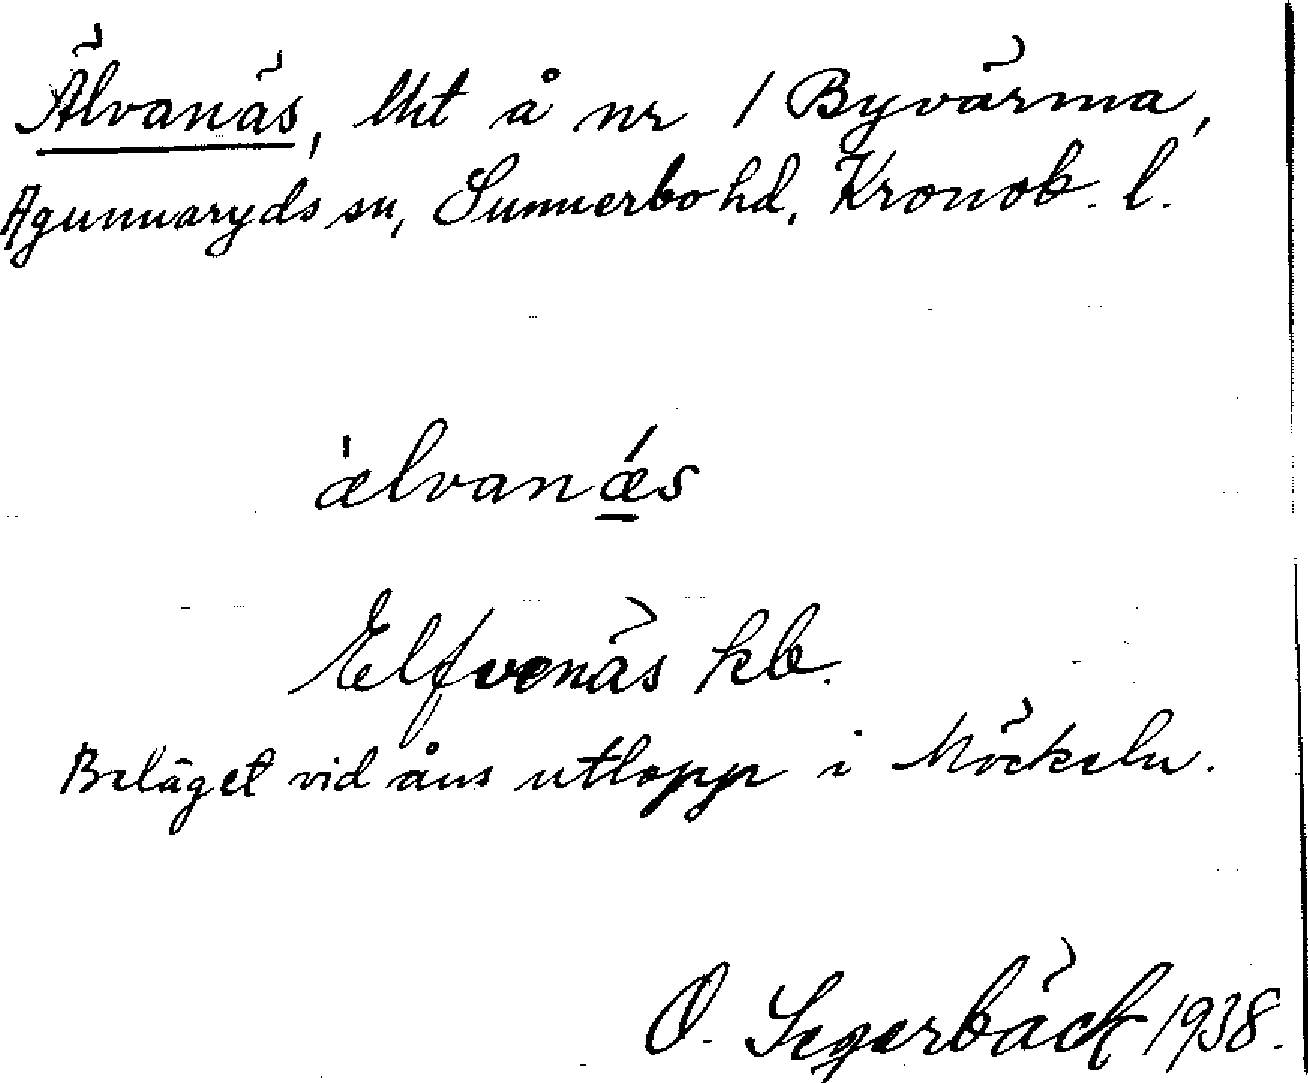 Älvanäs, lht å nr 1 Byvärma,
Agunnaryds sn, Sunnerbo hd, Kronob. l.
ælvanǽs
Elfvenäs kb.
Beläget vid åns utlopp i Möckeln.
O. Segerbäck 1938.